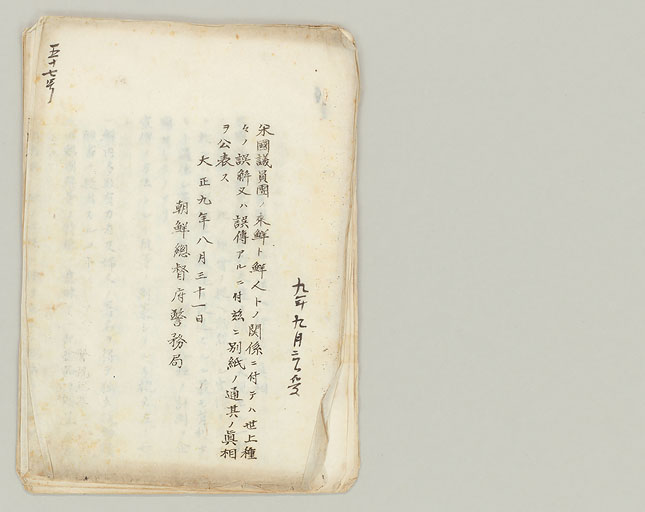 九年九月二
米國議員團ノ來鮮ト鮮人トノ関係ニ付テハ世上種
々ノ誤解又ハ誤傳アルニ付玆ニ別紙ノ通其ノ眞相
ヲ公表ス
大正九年八月三十一日
朝鮮總督府警務局
五十七号